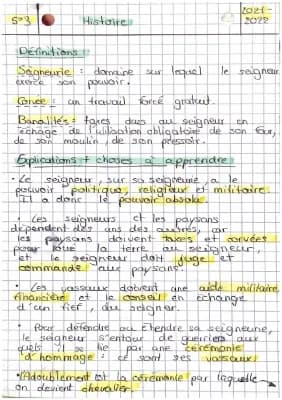 5°3 Histoire 2021-2022
Définitions
Seigneurie : domaine sur lequel le seigneur
exerce son pouvoir.
Corvée : un travail forcé gratuit.
Banalités : taxes dues au seigneur en
échange de l'utilisation obligatoire de son four,
de son moulin, de son pressoir.
Explications + choses à apprendre
• Le seigneur, sur sa seigneurie, a le
pouvoir politique, religieux et militaire.
Il a donc le pouvoir absolu.
• Les seigneurs et les paysans
dépendent des uns des autres, car
les paysans doivent taxes et corvées
pour loué la terre au seigneur,
et le seigneur doit juge et
commande aux paysans.
• Les vassaux doivent une aide militaire,
financière et le conseil en échange
d'un fief, du seigneur.
• Pour défendre ou étendre sa seigneurie,
le seigneur s'entoure de guerriers aux
quels il se lie par une cérémonie
d'hommage : ce sont ses vassaux.
• l'Adoubement est la cérémonie par laquelle
on devient chevalier.